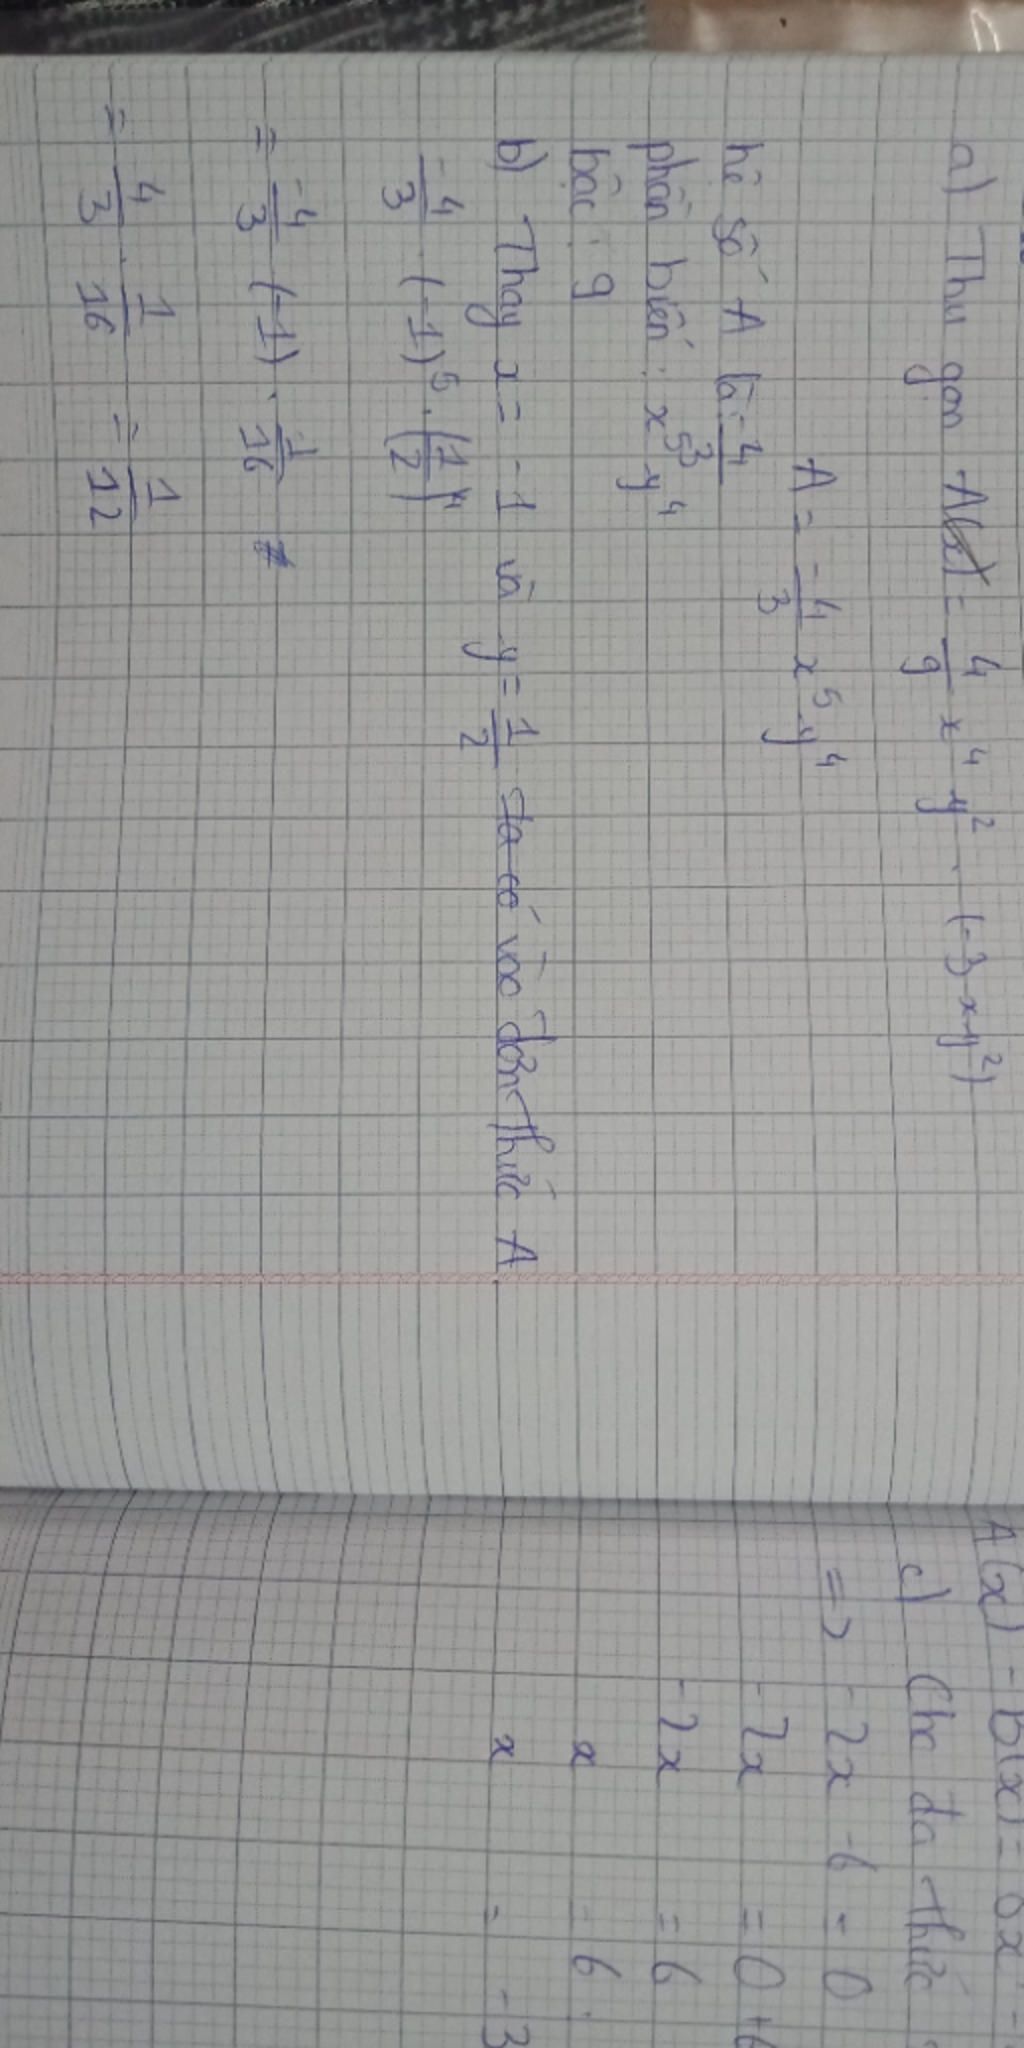 a) Thu gọn A = 4/9 x⁴ y² . (-3xy²)
A = -4/3 x⁵ y⁴
hê số A là: -4/3
phần biến: x⁵ y⁴
bậc: 9
b) Thay x = -1 và y = 1/2 vào đơn thức A
-4/3 . (-1)⁵ . (1/2)⁴
= -4/3 . (-1) . 1/16
= 4/3 . 1/16 = 1/12
A(x) - B(x) =
c) Cho đa thức
=> -2x - 6 = 0
-2x = 0 + 6
-2x = 6
x = 6 :
x = -3